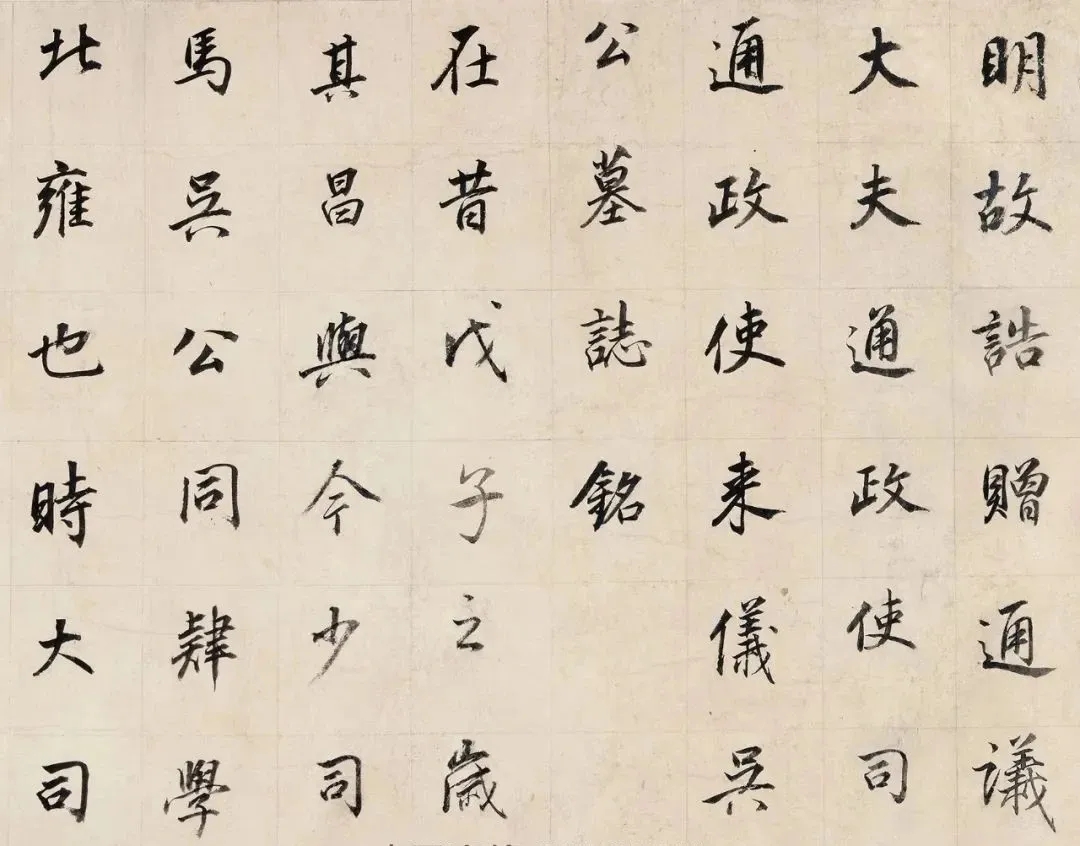 明故誥贈通議
大夫通政使司
通政使来儀吳
公墓誌銘
在昔戊子之歲
其昌與今少司
馬吳公同肄學
北雍也時大司